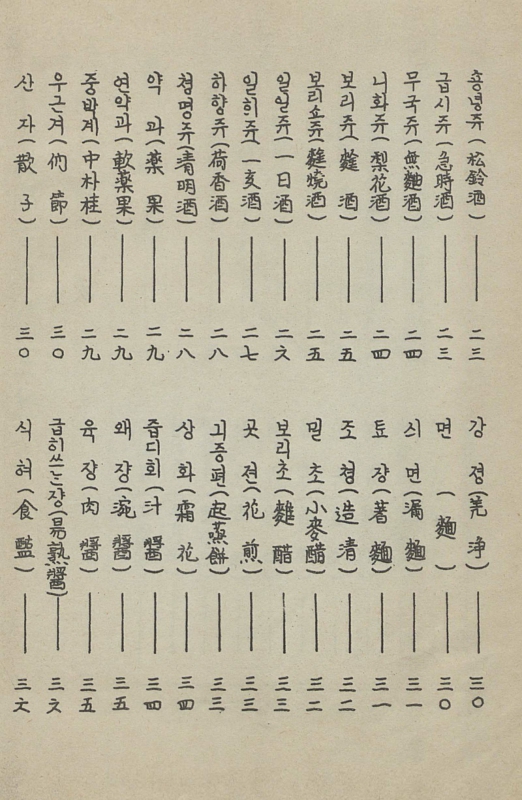 숑녕쥬(松鈴酒)——二三
급시쥬(急時酒)——二三
무국쥬(無麯酒)——二四
니화쥬(梨花酒)——二四
보리쥬(麰酒)——二五
보리쇼쥬(麰燒酒)——二五
일일쥬(一日酒)——二六
일히쥬(一亥酒)——二七
하향쥬(荷香酒)——二八
청명쥬(淸明酒)——二八
약과(藥果)——二九
연약과(軟藥果)——二九
중박계(中朴桂)——二九
우근겨(㐸節)——三〇
산자(散子)——三〇
강졍(羌淨)——三〇
면(麵)——三〇
싀면(漏麵)——三一
툐쟝(著麵)——三一
조쳥(造清)——三二
밀초(小麥醋)——三二
보리초(麰醋)——三三
곳젼(花煎)——三三
긔증편(起蒸餠)——三三
상화(霜花)——三四
즙디회(汁醬)——三四
왜쟝(涴醬)——三五
육쟝(肉醬)——三五
급히쓰는쟝(易熟醬)——三六
식혀(食醢)——三六